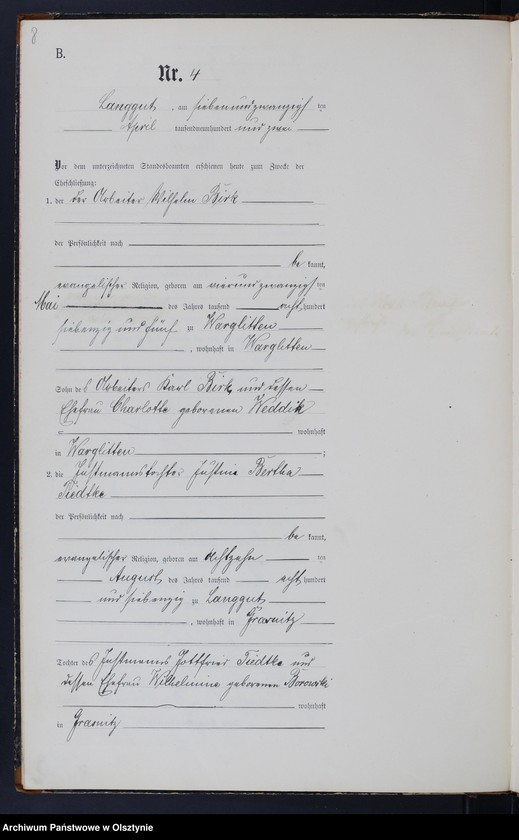 8
B.
Nr. 4
Langgut, am siebenundzwanzigsten
April tausendneunhundert und zwei
Vor dem unterzeichneten Standesbeamten erschienen heute zum Zwecke der
Eheschließung:
1. der der Arbeiter Wilhelm Birk
der Persönlichkeit nach
be kannt,
evangelischer Religion, geboren am vierundzwanzigsten
Mai des Jahres tausend acht hundert
siebenzig und fünf zu Warglitten
, wohnhaft in Warglitten
Sohn des Arbeiters Karl Birk und dessen
Ehefrau Charlotte geborenen Weddik
wohnhaft
in Warglitten ;
2. die Instmannstochter Justine Bertha
Tiedtke
der Persönlichkeit nach
be kannt,
evangelischer Religion, geboren am achtzehn ten
August des Jahres tausend acht hundert
und siebenzig zu Langgut
, wohnhaft in Grasnitz
Tochter des Instmanns Gottfried Tiedtke und
dessen Ehefrau Wilhelmine geborenen Borowski
wohnhaft
in Grasnitz
Archiwum Państwowe w Olsztynie